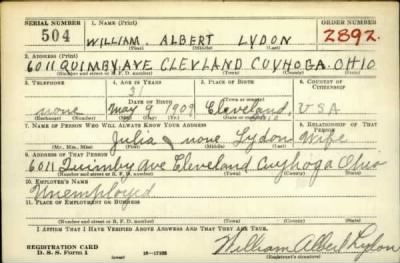 SERIAL NUMBER 1. NAME (Print) ORDER NUMBER
504 WILLIAM ALBERT LYDON 2892.
(First) (Middle) (Last)
2. ADDRESS (Print)
6011 QUIMBY AVE CLEVLAND CUYHOGA OHIO
(Number and street or R. F. D. number) (Town) (County) (State)
3. TELEPHONE 4. AGE IN YEARS 5. PLACE OF BIRTH 6. COUNTRY OF CITIZENSHIP
31
DATE OF BIRTH Cleveland
none May 9 1909 Ohio USA
(Exchange) (Number) (Mo.) (Day) (Yr.) (State or country)
7. NAME OF PERSON WHO WILL ALWAYS KNOW YOUR ADDRESS 8. RELATIONSHIP OF THAT PERSON
Julia none Lydon Wife
(Mr., Mrs., Miss) (First) (Middle) (Last)
9. ADDRESS OF THAT PERSON
6011 Quimby Ave Cleveland Cuyhoga Ohio
(Number and street or R. F. D. number) (Town) (County) (State)
10. EMPLOYER'S NAME
Unemployed
11. PLACE OF EMPLOYMENT OR BUSINESS
(Number and street or R. F. D. number) (Town) (County) (State)
I AFFIRM THAT I HAVE VERIFIED ABOVE ANSWERS AND THAT THEY ARE TRUE.
REGISTRATION CARD
D. S. S. Form 1 (over) William Albert Lydon
(Registrant's signature)